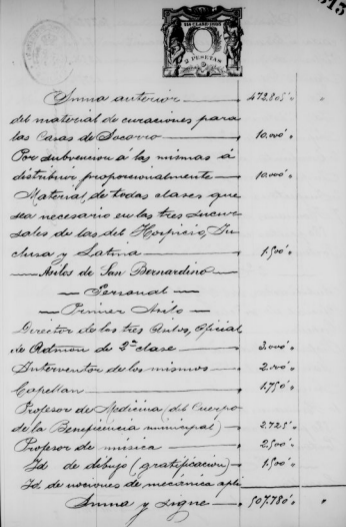 11ª CLASE 1887
2 PESETAS
Suma anterior 472.805'"
del material de curaciones para
las Casas de Socorro 10.000'"
Por subvencion á las mismas á
distribuir proporcionalmente 10.000'"
Material, de todas clases que
sea necesario en las tres sucur-
sales de las del Hospicio, In-
clusa y Latina 1.500'"
Asilos de San Bernardino
Personal
Primer Asilo
Director de los tres Asilos, Oficial
de Admon de 2ª clase 3.000'"
Interventor de los mismos 2.000'"
Capellan 1.750'"
Profesor de Medicina (del Cuerpo
de la Beneficencia municipal) 2.725'"
Profesor de música 2.500'"
Id de dibujo (gratificacion) 1.500'"
Id. de nociones de mecánica apli
Suma y sigue 507.780'"